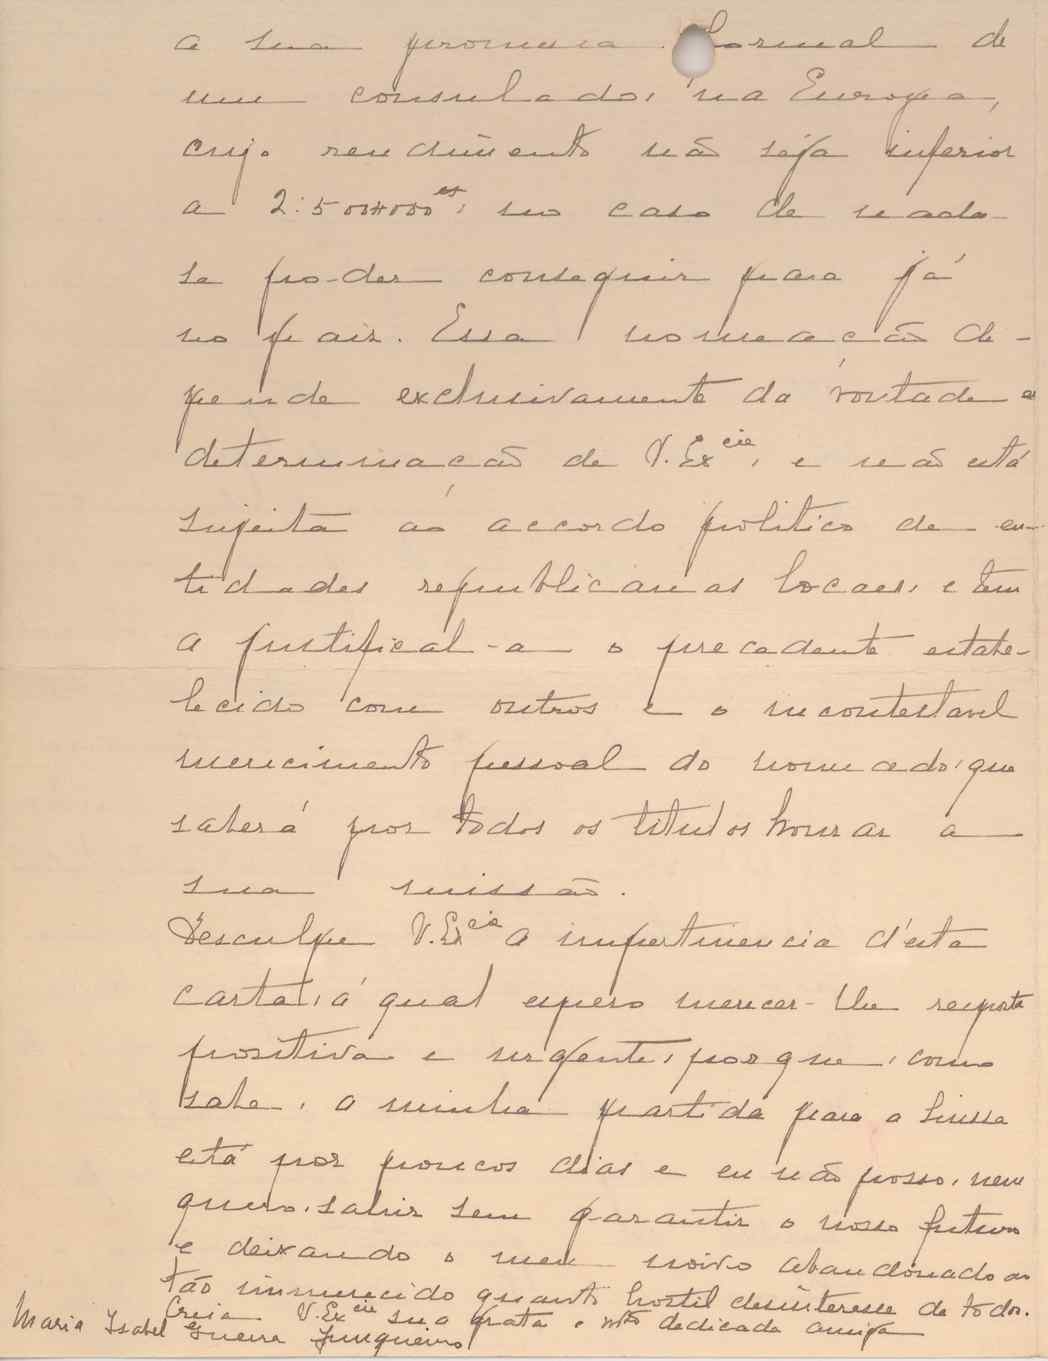 a sua promessa formal de
um consulado, na Europa,
cujo rendimento não seja inferior
a 2:500#000 rs, no caso de nada
se poder conseguir para já
no paiz. Essa nomeação de-
pende exclusivamente da vontade e
determinação de V. Excia, e não está
sujeita ao accordo politico de en-
tidades republicanas locaes, e tem
a justifical-a o precedente estabe-
lecido com outros e o incontestavel
merecimento pessoal do nomeado, que
saberá por todos os titulos honrar a
sua missão.
Desculpe V. Excia a impertinencia d'esta
carta, á qual espero merecer-lhe resposta
positiva e urgente, porque, como
sabe, a minha partida para a Suissa
está por poucos dias e eu não posso, nem
quero, sahir sem garantir o nosso futuro
e deixando o meu noivo abandonado ao
tão immerecido quanto hostil desinteresse de todos.
Creia V. Excia sua grata e mto dedicada amiga
Maria Isabel Guerra Junqueiro